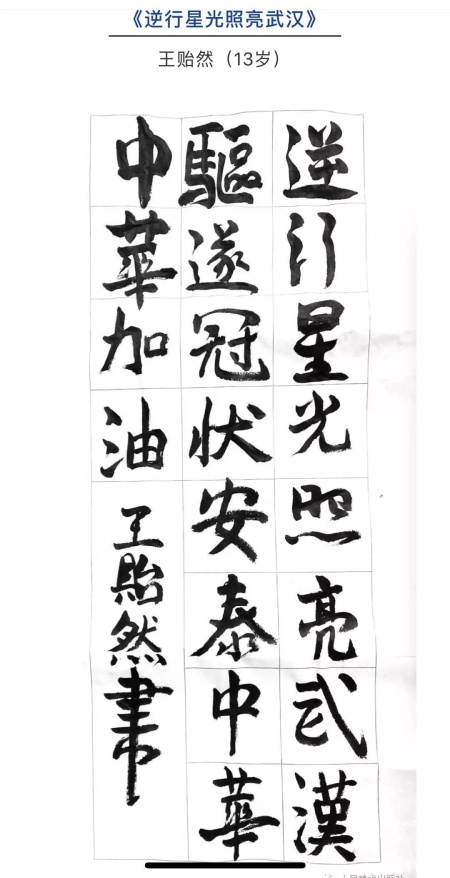 《逆行星光照亮武汉》
王贻然（13岁）
逆行星光照亮武漢
驅遂冠状安泰中華
中華加油
王貽然書